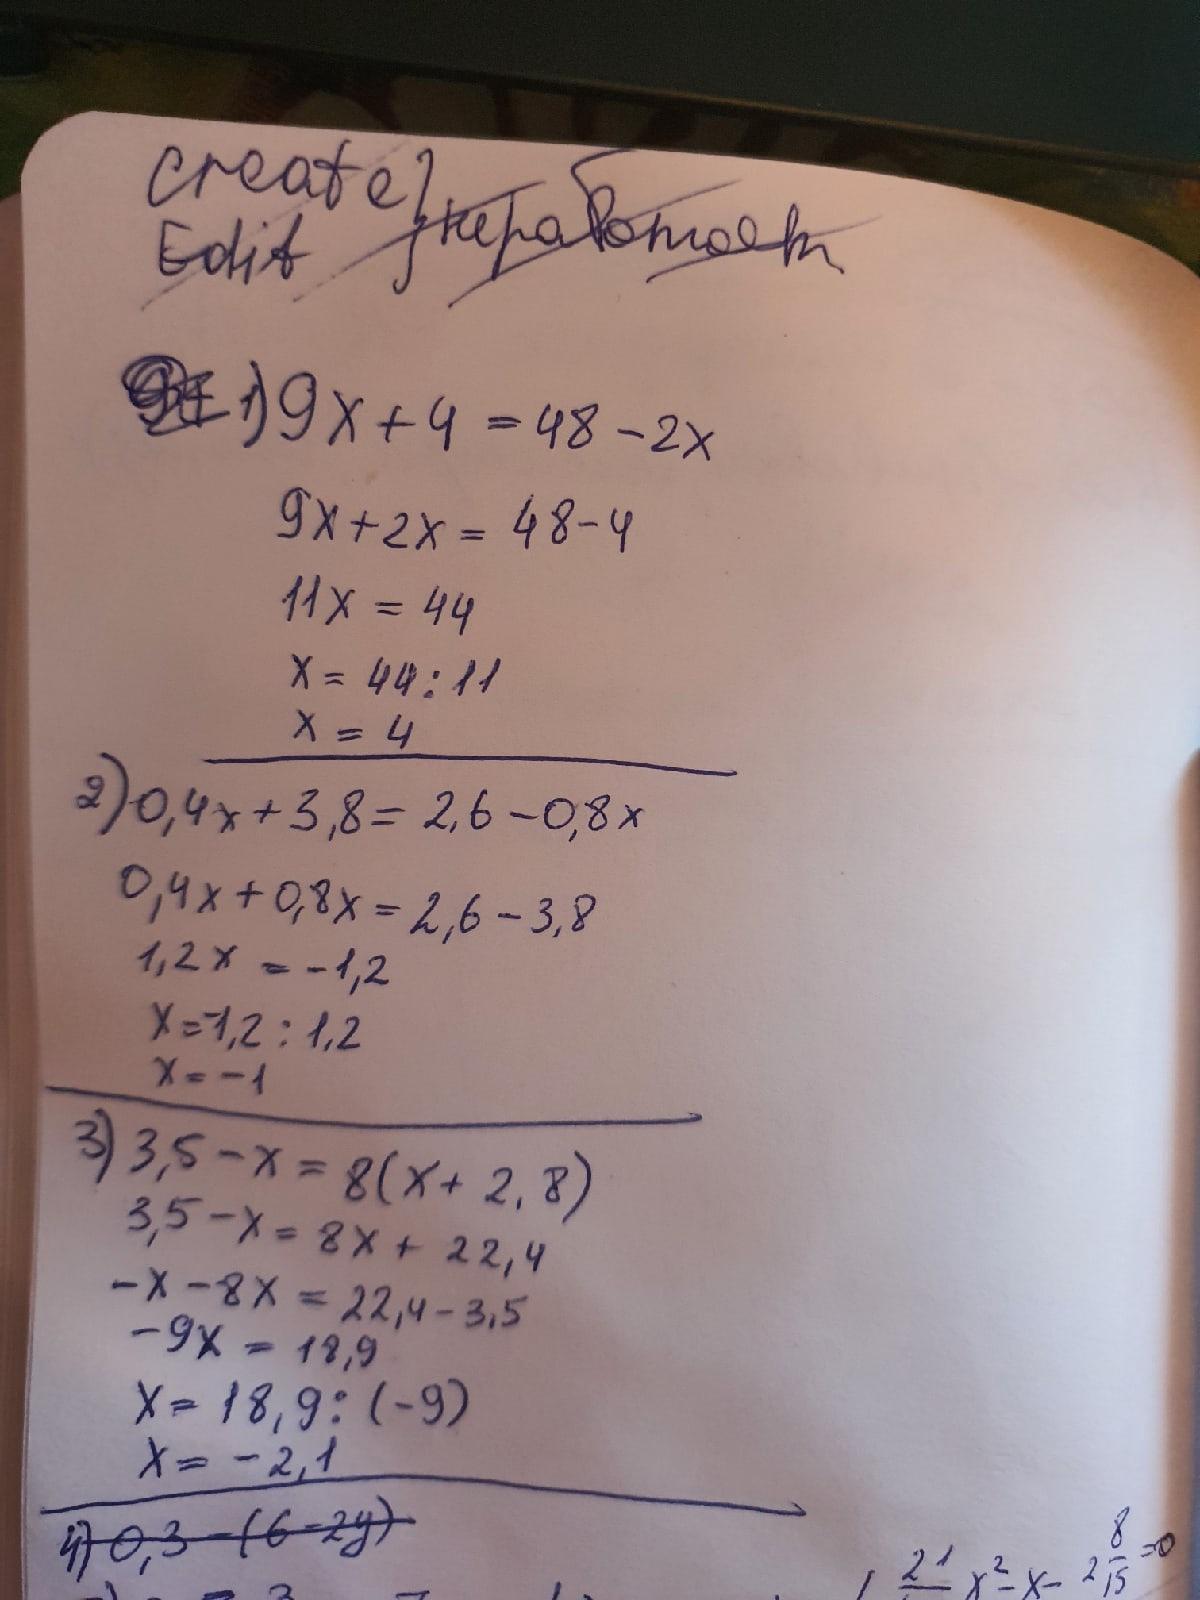 create }
Edit } неработает
1) 9x + 4 = 48 - 2x
9x + 2x = 48 - 4
11x = 44
x = 44 : 11
x = 4
2) 0,4x + 3,8 = 2,6 - 0,8x
0,4x + 0,8x = 2,6 - 3,8
1,2x = -1,2
x = -1,2 : 1,2
x = -1
3) 3,5 - x = 8(x + 2,8)
3,5 - x = 8x + 22,4
-x - 8x = 22,4 - 3,5
-9x = 18,9
x = 18,9 : (-9)
x = -2,1
4) 0,3 - (6 - 2y)
x² - x - 2 8/15 = 0